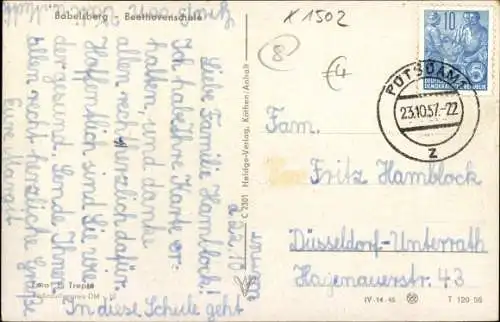 Babelsberg - Beethovenschule
X 1502
8
€4
10
DEUTSCHE
DEMOKRATISCHE REPUBLIK
POTSDAM
23.10.57.-22
Z
Liebe Familie Hamblock!
Ich habe Ihre Karte er-
halten, und danke
allen recht herzlich dafür.
Hoffentlich sind Sie wie-
der gesund. Sende Ihnen
allen recht herzliche Grüße
Eure Margit
In diese Schule geht
Werner
C 2301 Heldge-Verlag, Köthen/Anhalt
Fam.
Fritz Hamblock
Düsseldorf-Unterrath
Hagenauerstr. 43
IV-14-45
T 120 56